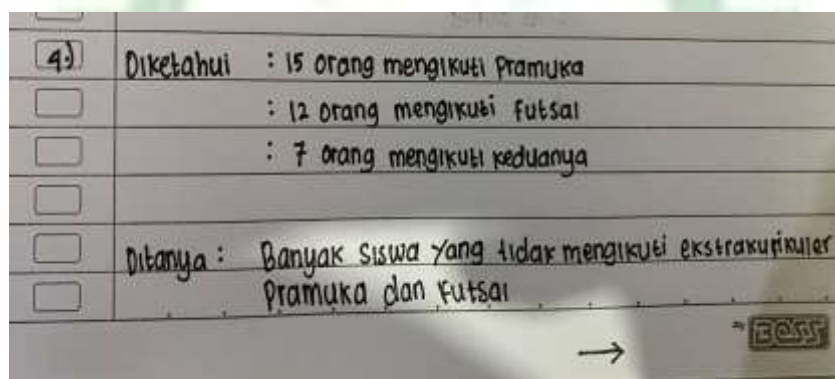 4.) Diketahui : 15 orang mengikuti Pramuka
: 12 orang mengikuti Futsal
: 7 orang mengikuti keduanya
Ditanya : Banyak siswa yang tidak mengikuti ekstrakurikuler
Pramuka dan Futsal
→ BOSS